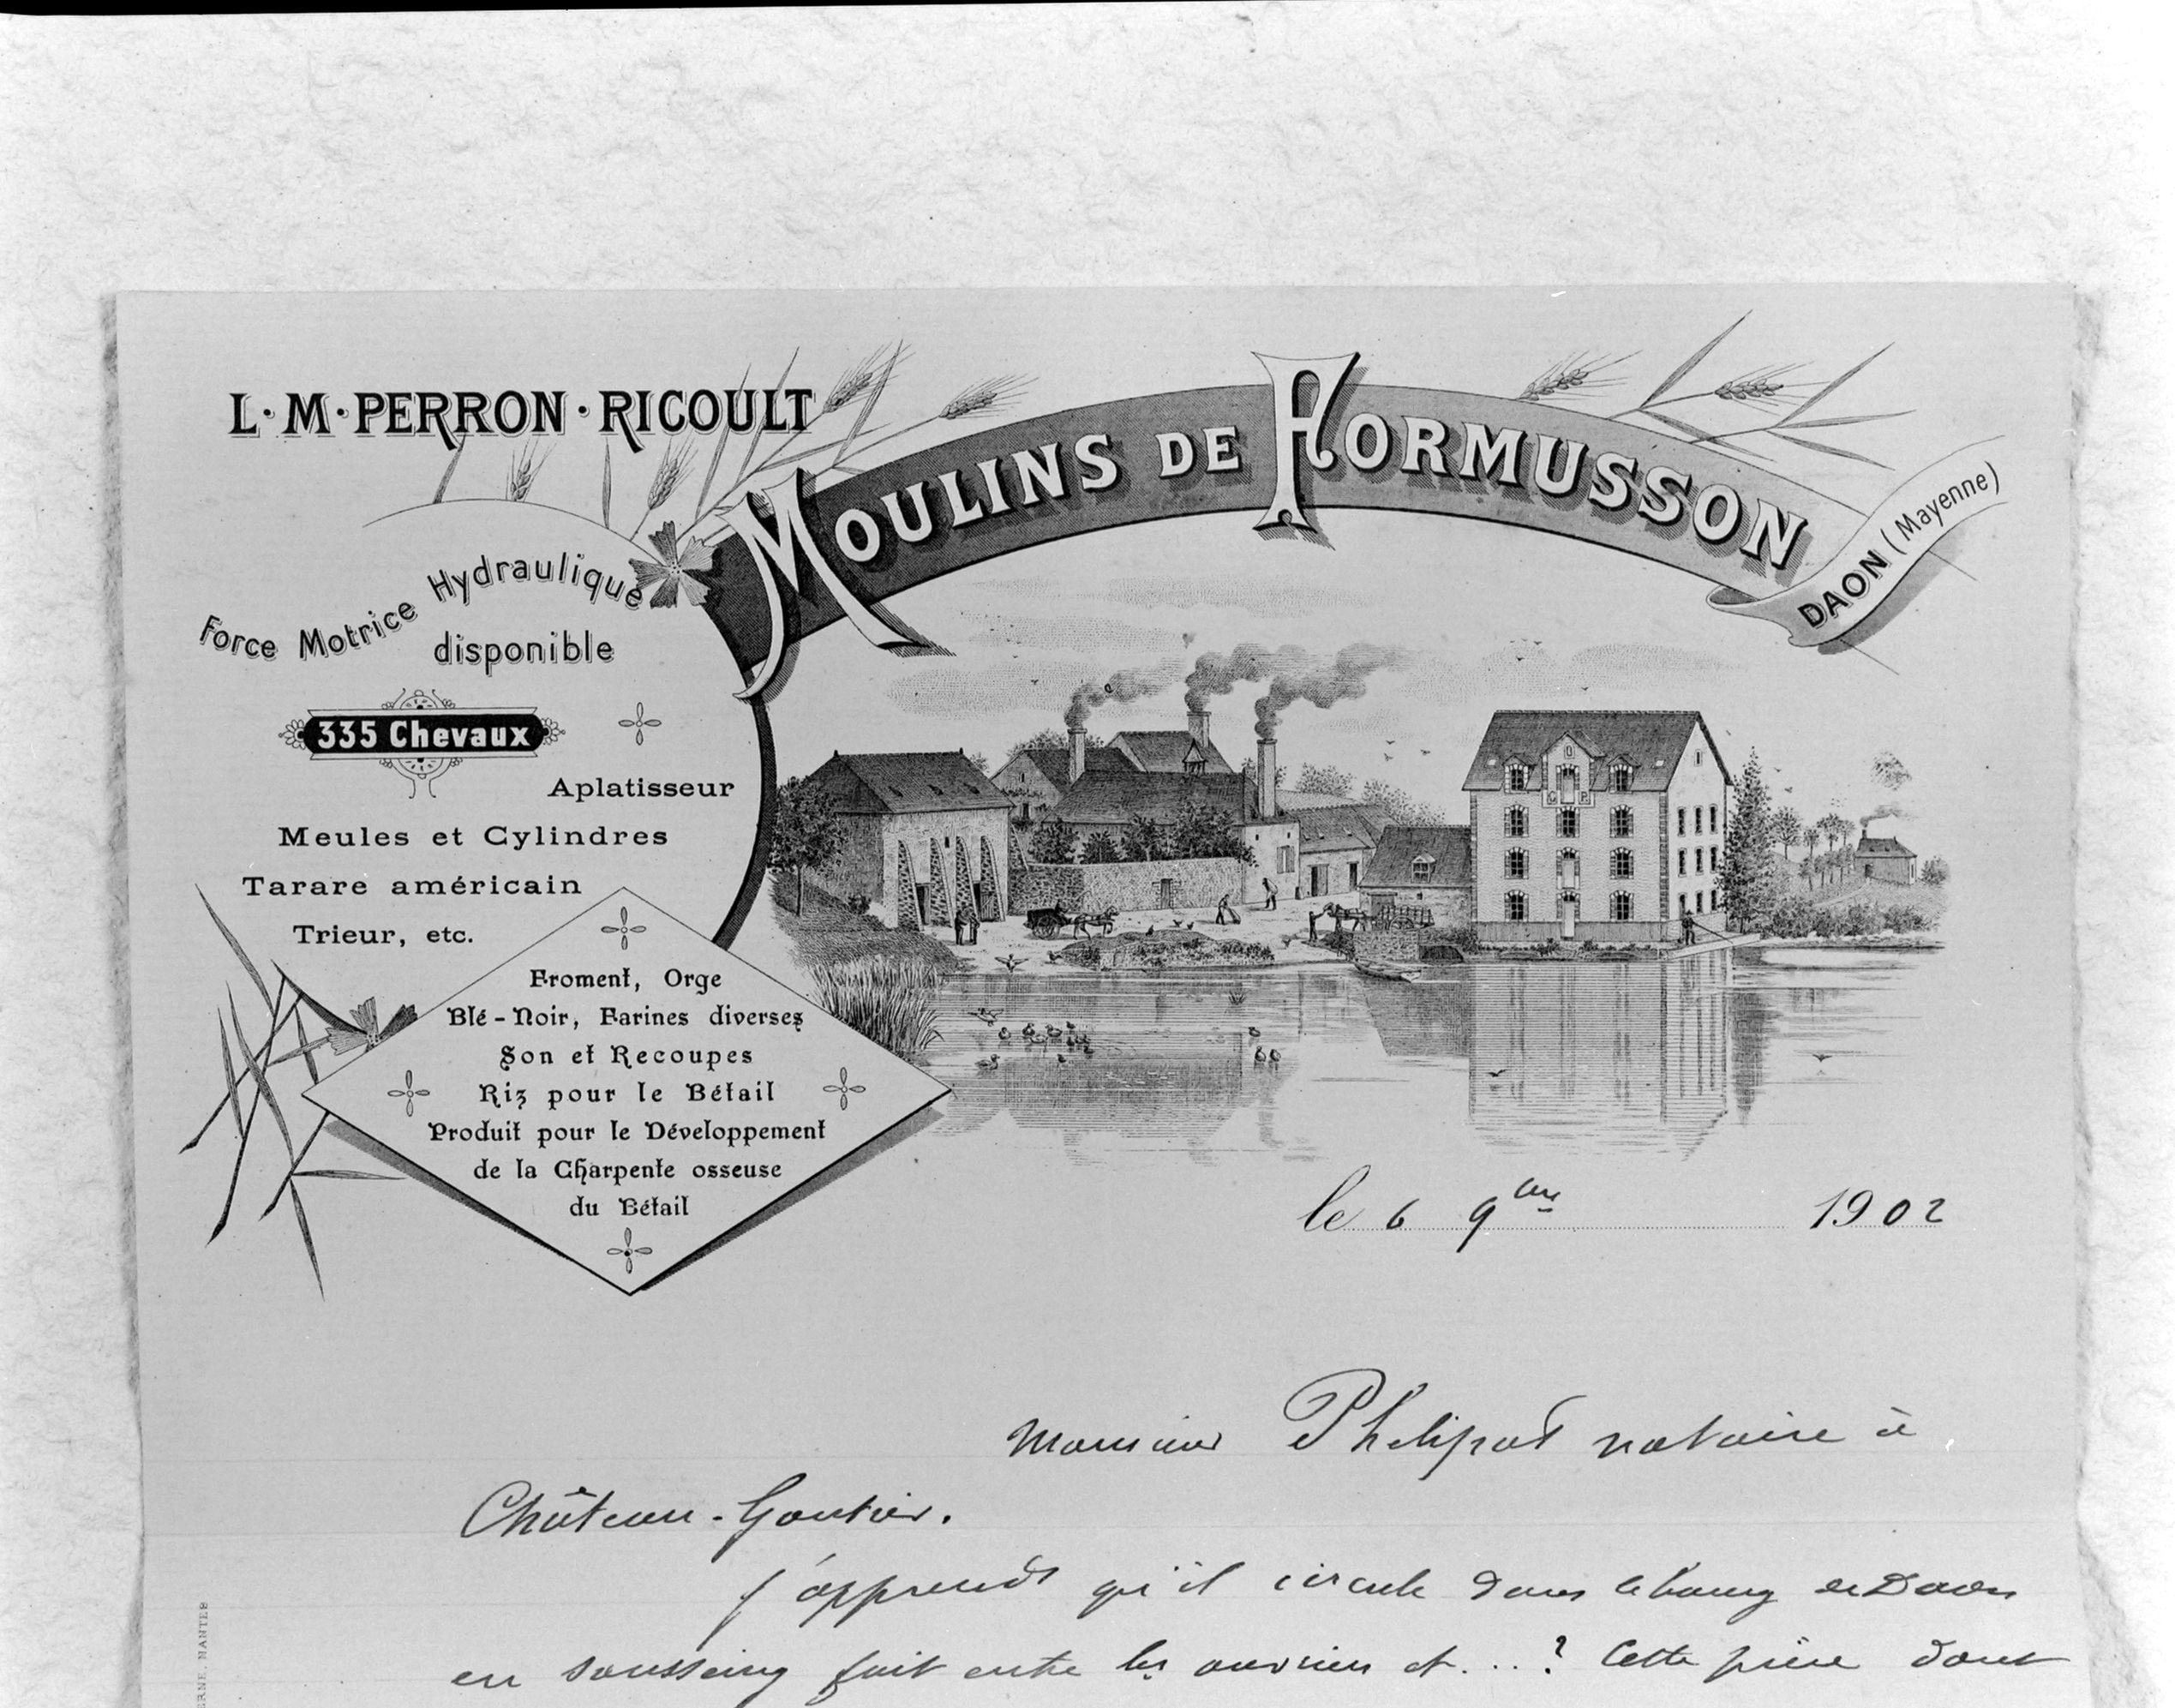 L·M·PERRON·RICOULT
MOULINS DE FORMUSSON
DAON (Mayenne)
Force Motrice Hydraulique
disponible
335 Chevaux
Aplatisseur
Meules et Cylindres
Tarare américain
Trieur, etc.
Froment, Orge
Blé-Noir, Farines diverses
Son et Recoupes
Riz pour le Bétail
Produit pour le Développement
de la Charpente osseuse
du Bétail
G P
le 6 9bre 1902
Monsieur Phelipot notaire à
Château-Gontier.
j'apprends qu'il circule dans le bourg de Daon
en sousseing fait entre les ouvriers et...? Cette pièce dont
ERNE, NANTES